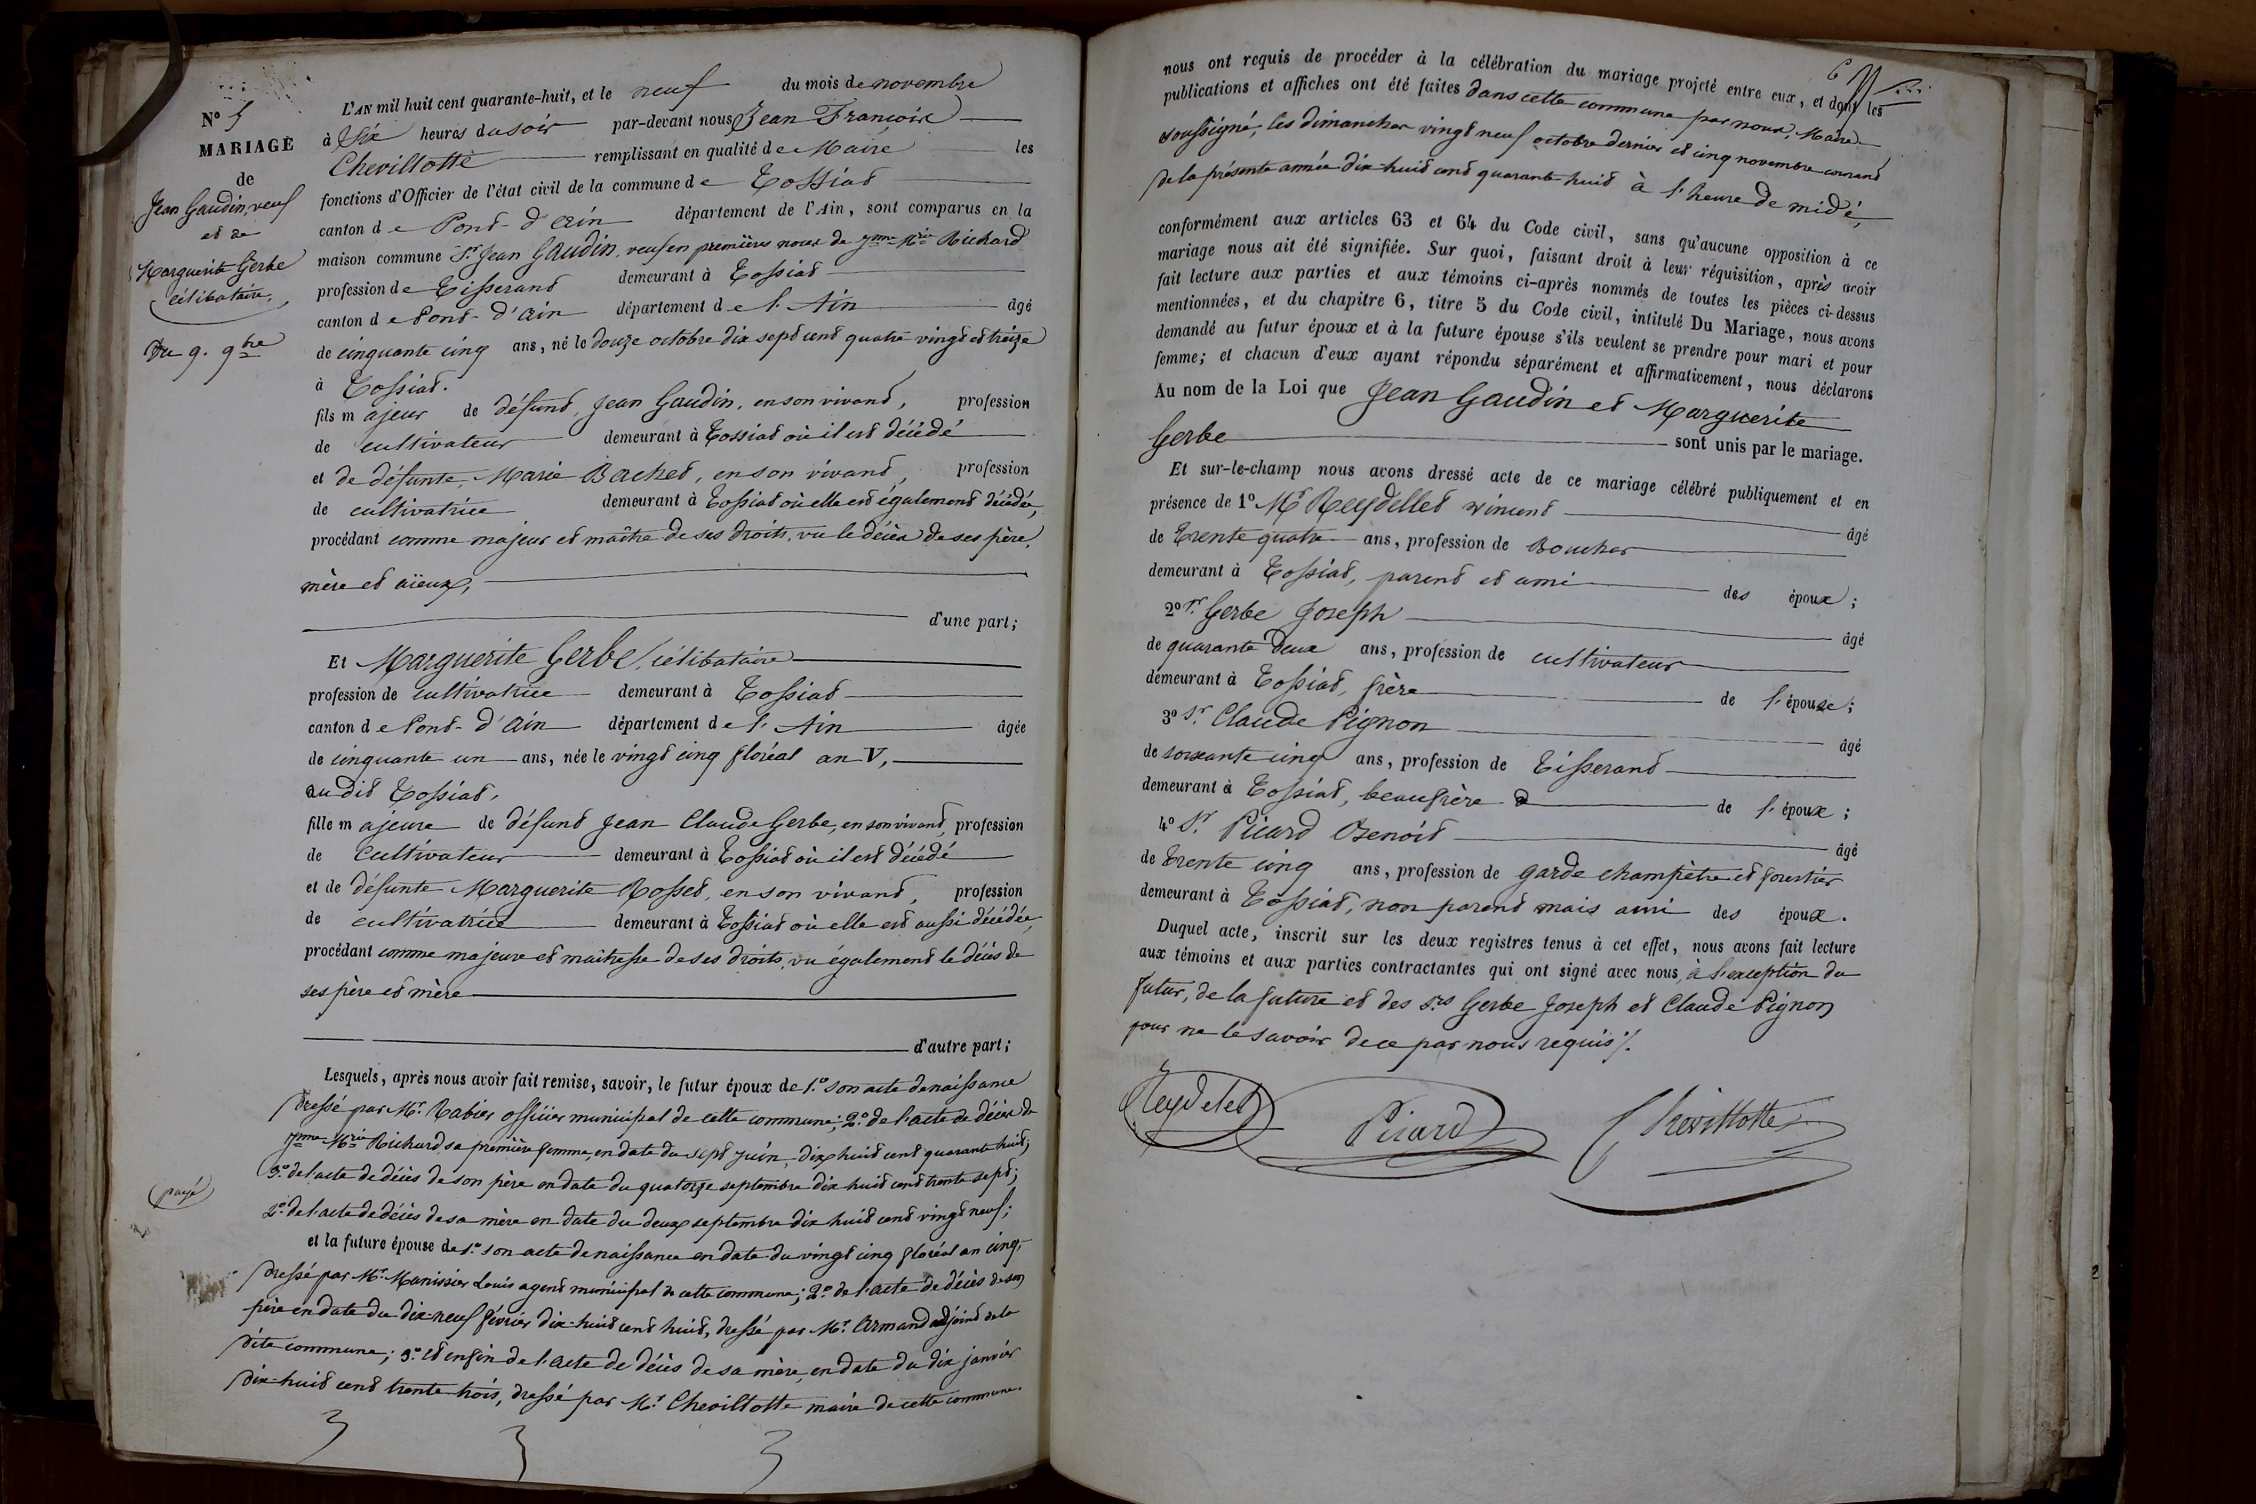 N° 5
MARIAGE
de
Jean Gaudin, veuf
et de
Marguerite Gerbe
célibataire.
Du 9. 9bre
L'AN mil huit cent quarante-huit, et le neuf du mois de novembre
à Six heures du soir par-devant nous Jean François
Chevillotte remplissant en qualité de Maire les
fonctions d'Officier de l'état civil de la commune de Tossiat
canton de Pont-d'ain département de l'Ain, sont comparus en la
maison commune Sr. Jean Gaudin, veuf en premières noces de Jnne Mie Richard
profession de Tisserand demeurant à Tossiat
canton de Pont-d'ain département de l'Ain âgé
de cinquante cinq ans, né le douze octobre dix sept cent quatre vingt et treize
à Tossiat.
fils majeur de défunt, Jean Gaudin, en son vivant, profession
de cultivateur demeurant à Tossiat où il est décédé
et de défunte, Marie Bachet, en son vivant, profession
de cultivatrice demeurant à Tossiat où elle est également décédée,
procédant comme majeur et maître de ses droits, vu le décès de ses père,
mère et aïeux,
d'une part;
Et Marguerite Gerbe, célibataire
profession de cultivatrice demeurant à Tossiat
canton de Pont-d'ain département de l'Ain âgée
de cinquante un ans, née le vingt cinq floréal an V,
au dit Tossiat,
fille majeure de défunt Jean Claude Gerbe, en son vivant, profession
de cultivateur demeurant à Tossiat où il est décédé
et de défunte Marguerite Rosset, en son vivant, profession
de cultivatrice demeurant à Tossiat où elle est aussi décédée,
procédant comme majeure et maîtresse de ses droits, vu également le décès de
ses père et mère
d'autre part;
Lesquels, après nous avoir fait remise, savoir, le futur époux de 1.° son acte de naissance
dressé par Mr. Rabier officier municipal de cette commune; 2.° de l'acte de décès de
Jnne Mie Richard sa première femme, en date du sept juin, dix huit cent quarante huit;
3.° de l'acte de décès de son père en date du quatorze septembre dix huit cent trente sept;
4.° de l'acte de décès de sa mère en date du deux septembre dix huit cent vingt neuf;
et la future épouse de 1.° son acte de naissance en date du vingt cinq floréal an cinq,
dressé par Mr. Manissier Louis agent municipal de cette commune; 2.° de l'acte de décès de son
père en date du dix-neuf février dix-huit cent huit, dressé par Mr. Armand adjoint de la
dite commune; 3.° et enfin de l'acte de décès de sa mère, en date du dix janvier
dix-huit cent trente trois, dressé par Mr. Chevillotte maire de cette commune.
payé
6
nous ont requis de procéder à la célébration du mariage projeté entre eux, et dont les
publications et affiches ont été faites dans cette commune par nous, Maire
soussigné, les dimanches vingt neuf octobre dernier et cinq novembre courant
de la présente année dix-huit cent quarante huit à l'heure de midi,
conformément aux articles 63 et 64 du Code civil, sans qu'aucune opposition à ce
mariage nous ait été signifiée. Sur quoi, faisant droit à leur réquisition, après avoir
fait lecture aux parties et aux témoins ci-après nommés de toutes les pièces ci-dessus
mentionnées, et du chapitre 6, titre 5 du Code civil, intitulé Du Mariage, nous avons
demandé au futur époux et à la future épouse s'ils veulent se prendre pour mari et pour
femme; et chacun d'eux ayant répondu séparément et affirmativement, nous déclarons
Au nom de la Loi que Jean Gaudin et Marguerite
Gerbe sont unis par le mariage.
Et sur-le-champ nous avons dressé acte de ce mariage célébré publiquement et en
présence de 1° Mr Reydellet vincent âgé
de Trente quatre ans, profession de Boucher
demeurant à Tossiat, parent et ami des époux;
2° Sr. Gerbe Joseph âgé
de quarante deux ans, profession de cultivateur
demeurant à Tossiat, frère de l'épouse;
3° Sr. Claude Pignon âgé
de soixante cinq ans, profession de Tisserand
demeurant à Tossiat, beaufrère de l'époux;
4° Sr. Picard Benoît âgé
de Trente cinq ans, profession de garde champêtre et forestier
demeurant à Tossiat, non parent mais ami des époux.
Duquel acte, inscrit sur les deux registres tenus à cet effet, nous avons fait lecture
aux témoins et aux parties contractantes qui ont signé avec nous, à l'exception du
futur, de la future et des Srs Gerbe Joseph et Claude Pignon
pour ne le savoir de ce par nous requis.
Reydelet
Picard
Chevillotte